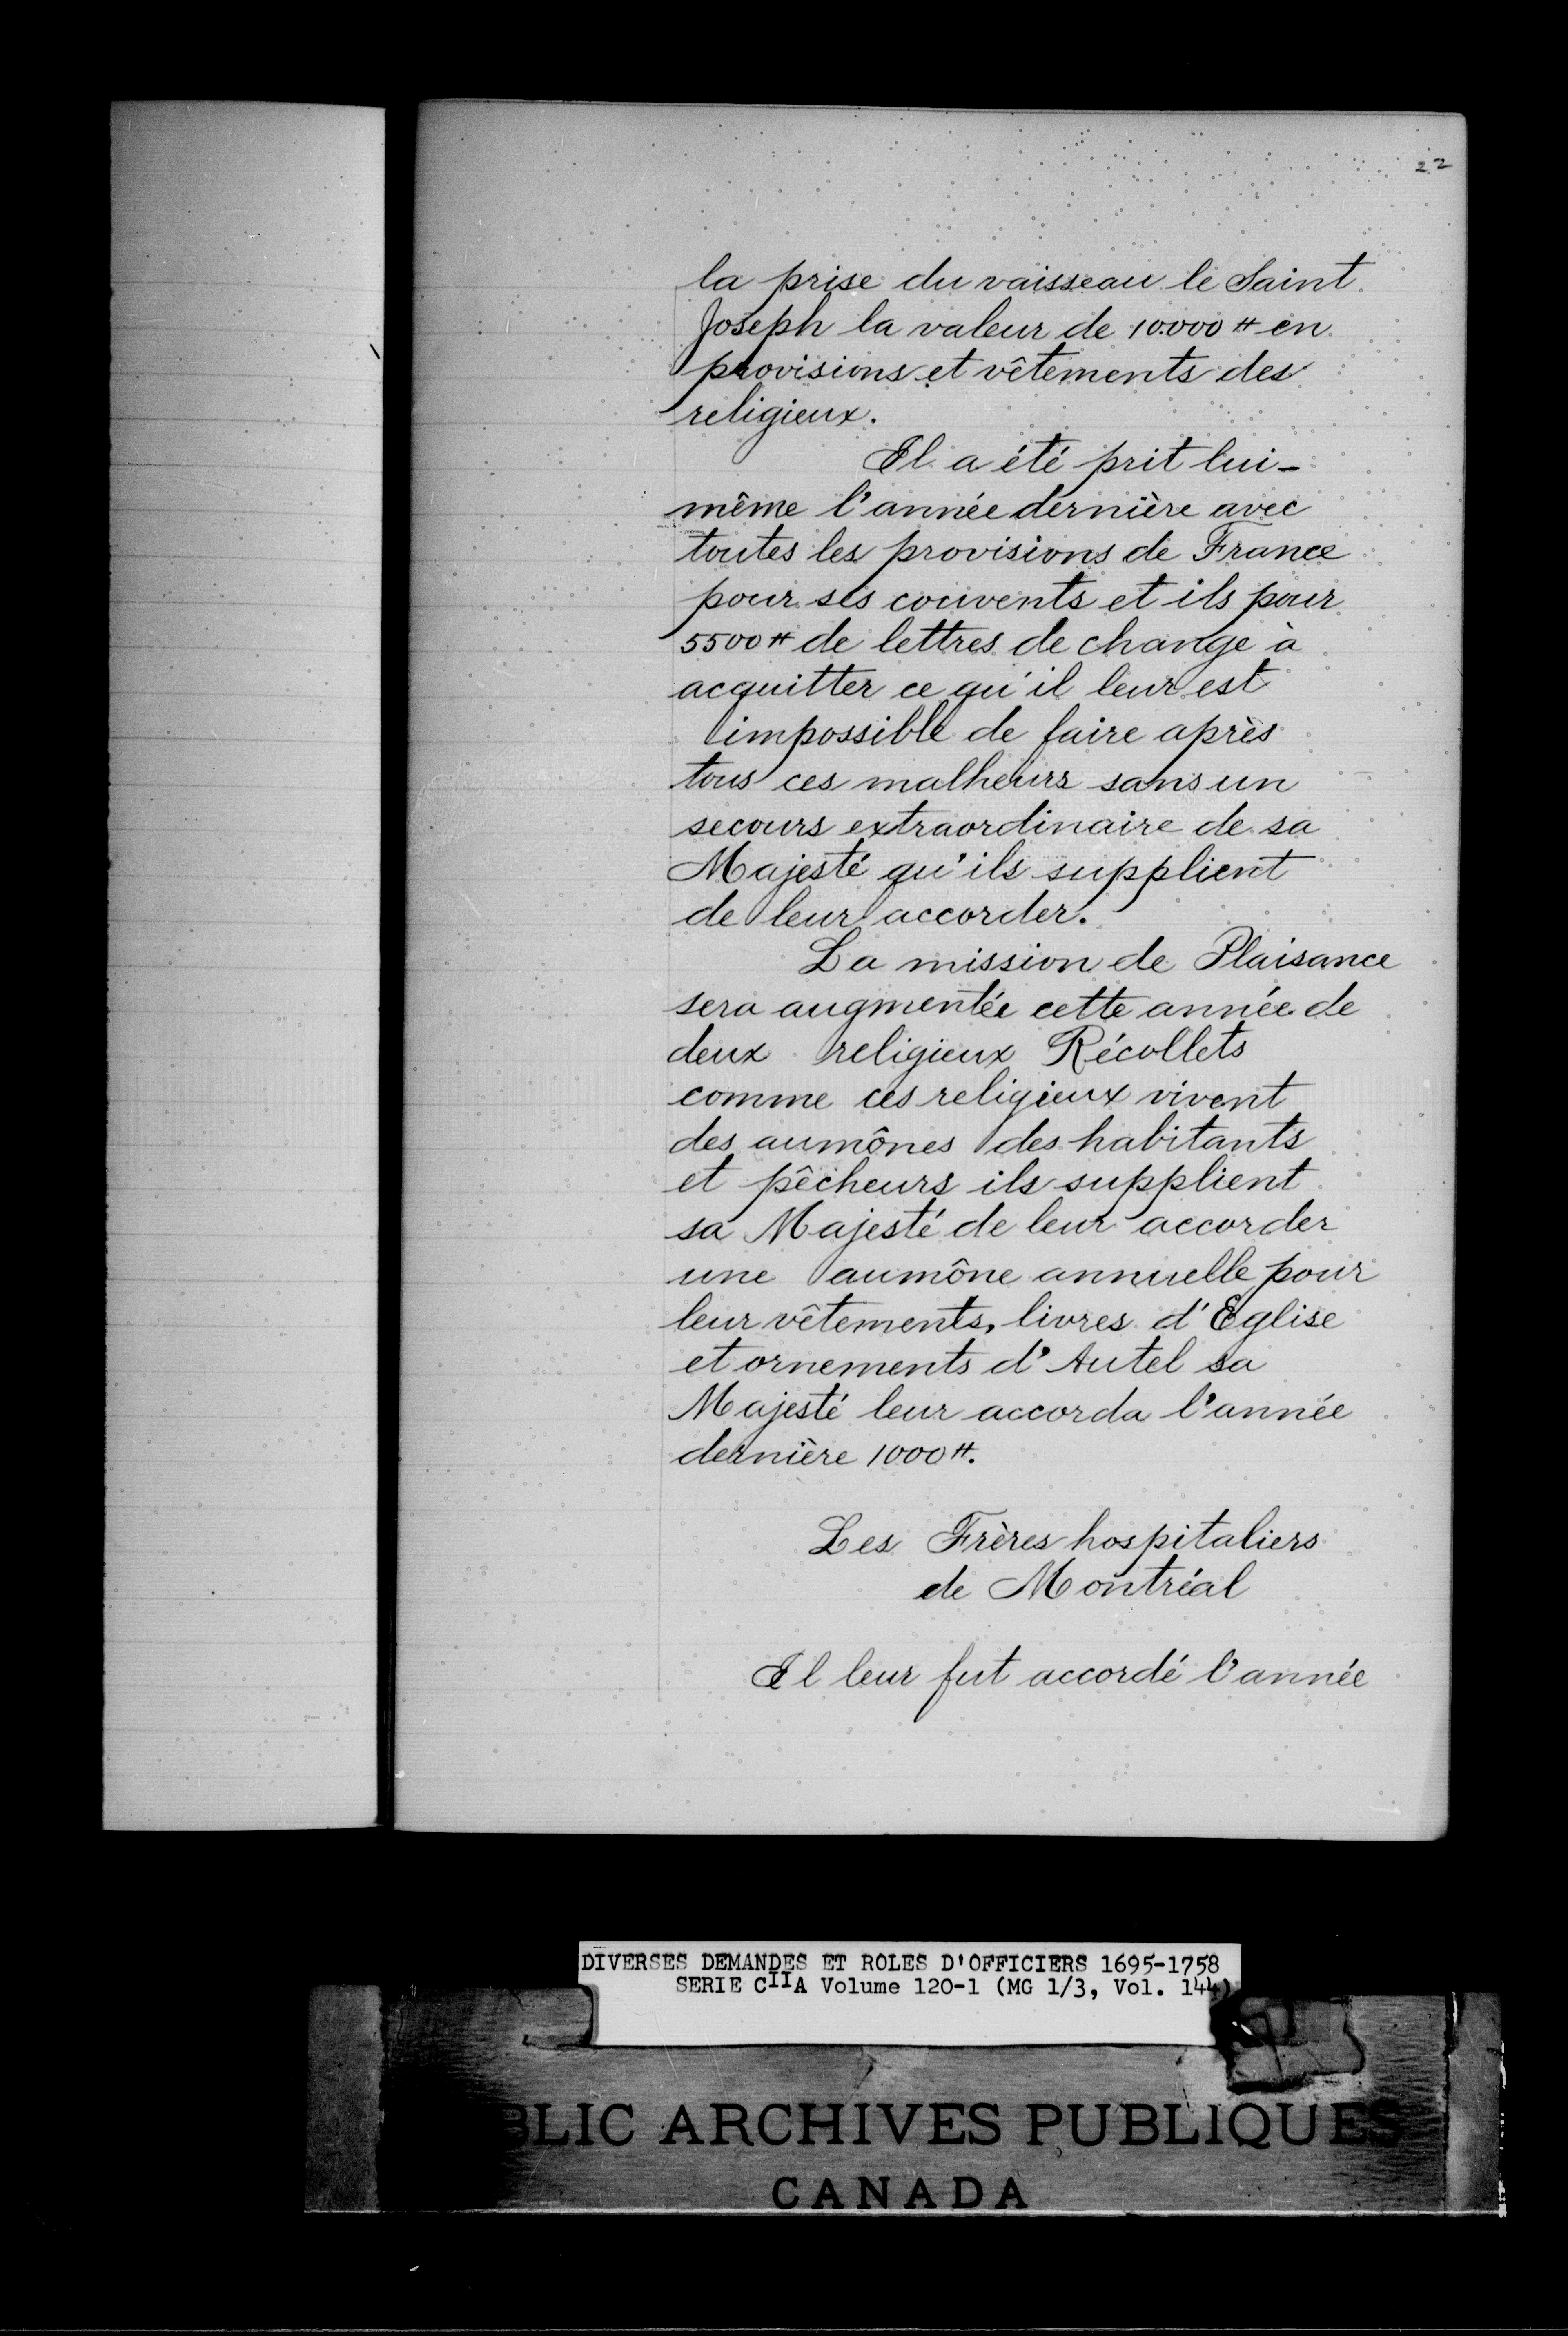 22
la prise du vaisseau le Saint
Joseph la valeur de 10.000 ₶ en
provisions et vêtements des
religieux.
Il a été prit lui-
même l'année dernière avec
toutes les provisions de France
pour ses couvents et ils pour
5500 ₶ de lettres de change à
acquitter ce qu'il leur est
impossible de faire après
tous ces malheurs sans un
secours extraordinaire de sa
Majesté qu'ils supplient
de leur accorder.
La mission de Plaisance
sera augmentée cette année de
deux religieux Récollets
comme ces religieux vivent
des aumônes des habitants
et pêcheurs ils supplient
sa Majesté de leur accorder
une aumône annuelle pour
leur vêtements, livres d'Eglise
et ornements d'Autel sa
Majesté leur accorda l'année
dernière 1000 ₶.
Les Frères hospitaliers
de Montréal
Il leur fut accordé l'année
DIVERSES DEMANDES ET ROLES D'OFFICIERS 1695-1758
SERIE CIIA Volume 120-1 (MG 1/3, Vol. 144)
BLIC ARCHIVES PUBLIQUES
CANADA